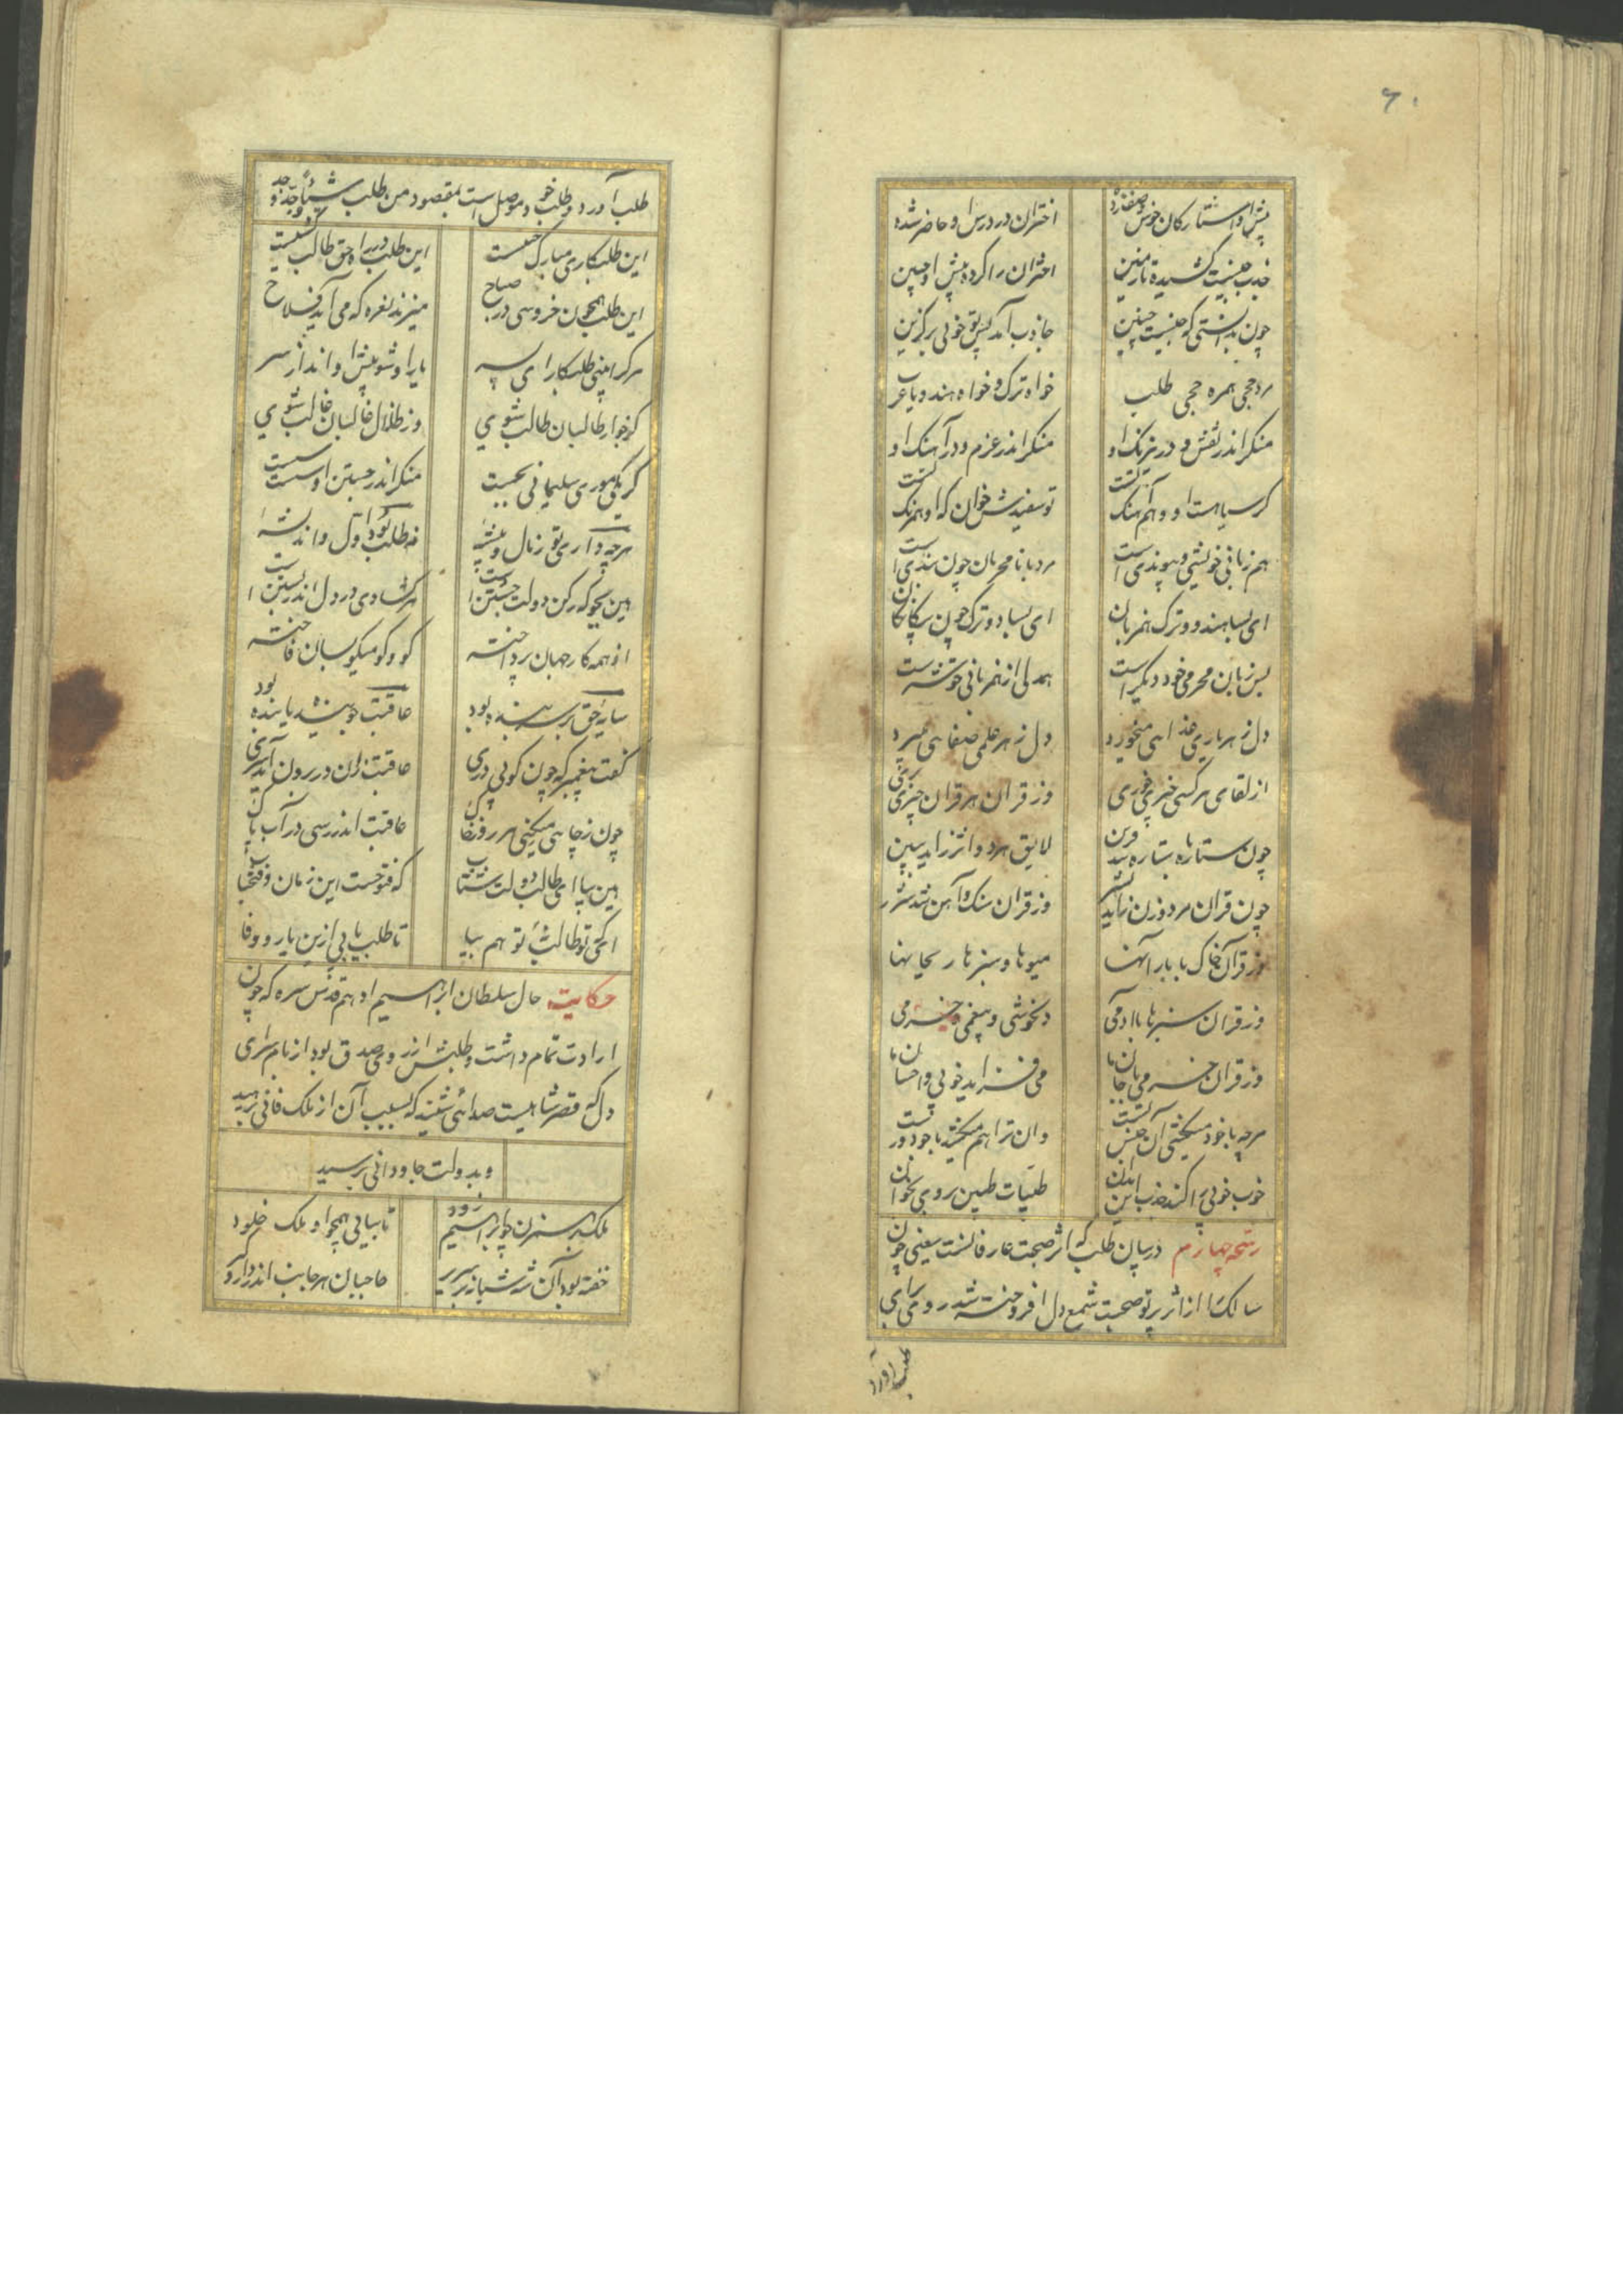 ۶۰
پیش او استارکان خوش صف زده
اختران در درس او حاضر شده
جذب جنسیت کشیده تا زمین
اختران را کرده پیش او مبین
چون بدانستی که جنسیت چنین
جاذب آمد پس تو خوبی برگزین
مرد حجی همره حجی طلب
خواه ترک و خواه هند و یا عرب
منکر اندر نقش و در رنک او
منکر اندر عزم و در آهنک او
کر سیاهست او و هم آهنک تست
تو سفیدش خوان که او همرنک تست
هم زبانی خویشی و پیوندی است
مرد با نامحرمان چون بندی است
ای بسا هند و و ترک همزبان
ای بسا دو ترک چون بیکانکان
پس زبان محرمی خود دیکر است
همدلی از همزبانی خوشتر است
دل ز هر یاری غذایی میخورد
دل ز هر علمی صفایی میبرد
از لقای هر کسی چیزی خوری
وز قران هر قران چیزی بری
چون ستاره با ستاره شد قرین
لایق هر دو اثر زاید ببین
چون قران مرد و زن زاید بشر
وز قران سنک و آهن شد شرر
وز قران خاک با بارانها
میوها و سبزها ریحانها
وز قران سبزها با آدمی
دلخوشی و بیغمی و خرمی
وز قران خرمی با جان ما
می فزاید خوبی و احسان ما
هر چه با خود میکشی آن جنس تست
خوب خوبی را کند جذب این بدان
طیبات طیبین بر وی بخوان
رشحه چهارم در بیان طلب که اثر صحبت عارفانست یعنی چون
سالک را از اثر پرتو صحبت شمع دل افروخته شد روی برای
طلب آورد
طلب آورد و طلب خود موصل است بمقصود من طلب شیئا و جد وجد
این طلبکاری مبارک جنبشیست
این طلب در راه حق طالب کشیست
این طلب همچون خروسی در صباح
میزند نعره که می آید فلاح
هر کرا بینی طلبکار ای پسر
یار او شو پیش او انداز سر
کز جوار طالبان طالب شوی
وز ظلال غالبان غالب شوی
کر یکی موری سلیمانی بجست
منکر اندر جستن او سست سست
هر چه داری تو ز مال و پیشه
نه طلب بود اول و اندیشه
هین بجو که رکن دولت جستن است
هر کشادی در دل اندر بستن است
از همه کار جهان پرداخته
کو و کو میکو بسان فاخته
سایه حق بر سر بنده بود
عاقبت جوینده یابنده بود
گفت پیغمبر که چون کوبی دری
عاقبت زان در برون آید سری
چون ز چاهی میکنی هر روز خاک
عاقبت اندر رسی در آب پاک
هین بیا ای طالب دولت شتاب
که فتوحست این زمان و فتح باب
ای که تو طالب نه تو هم بیا
تا طلب یابی ازین یار وفا
حکایت حال سلطان ابراهیم ادهم قدس سره که چون
ارادت تمام داشت و طلبش از روی صدق بود از بام سرای
دل که قصر شاهیست صدائی شنید که بسبب آن از ملک فانی برهید
و بدولت جاودانی برسید
ملک برهم زن تو ابراهیم وار زود
تا بیابی همچو او ملک خلود
خفته بود آن شه شبانه بر سریر
حاجبان هر جانب اندر دار و گیر